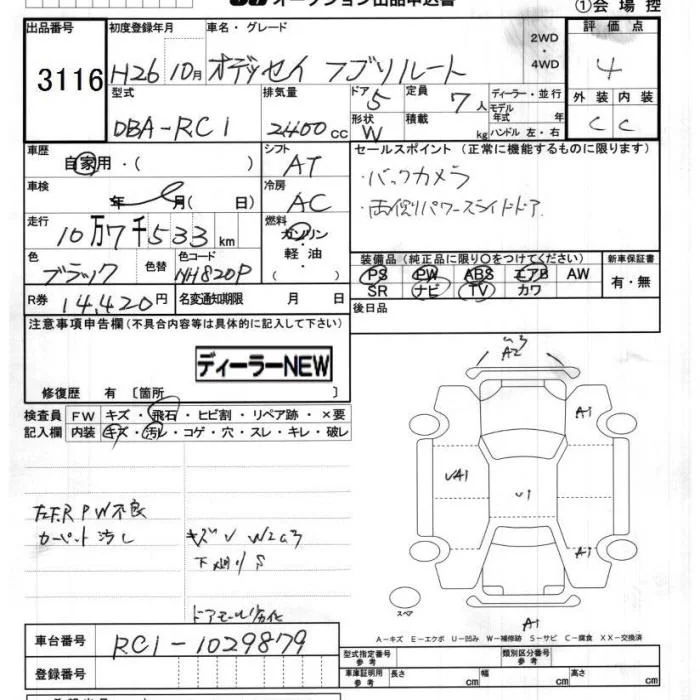 オークション出品申込書
①会場控
出品番号 初度登録年月 車名・グレード 評価点
3116 H26 10月 オデッセイ アブソリュート 2WD・4WD 4
型式 排気量 ドア 5 定員 7人 ディーラー・並行 外装 内装
DBA-RC1 2400cc 形状 W 積載 kg モデル年式 年 ハンドル 左・右 C C
車歴 自家用・( ) シフト AT セールスポイント (正常に機能するものに限ります)
車検 年 月( 日) 冷房 AC ・バックカメラ
走行 10万7千533km 燃料 ガソリン・軽油・( ) ・両側パワースライドドア
色 ブラック 色替 色コード NH820P
装備品(純正品に限り○をつけてください) 新車保証書
PS PW ABS エアB AW 有・無
SR ナビ TV カワ
R券 14,420円 名変通知期限 月 日 後日品
注意事項申告欄(不具合内容等は具体的に記入して下さい)
ディーラーNEW
修復歴 有 [箇所 ]
検査員記入欄 FW キズ・飛石・ヒビ割・リペア跡・×要
内装 キズ・汚レ・コゲ・穴・スレ・キレ・破レ
A2
A1
UA1
U1
A1
R PW不良
カーペット汚し
キズ U W2
下廻り S
ドアモール劣化
スペア
A1
A-キズ E-エクボ U-凹み W-補修跡 S-サビ C-腐食 XX-交換済
車台番号 RC1-1029879
登録番号
型式指定番号 参考 類別区分番号 参考
車庫証明用 参考 長さ cm 幅 cm 高さ cm